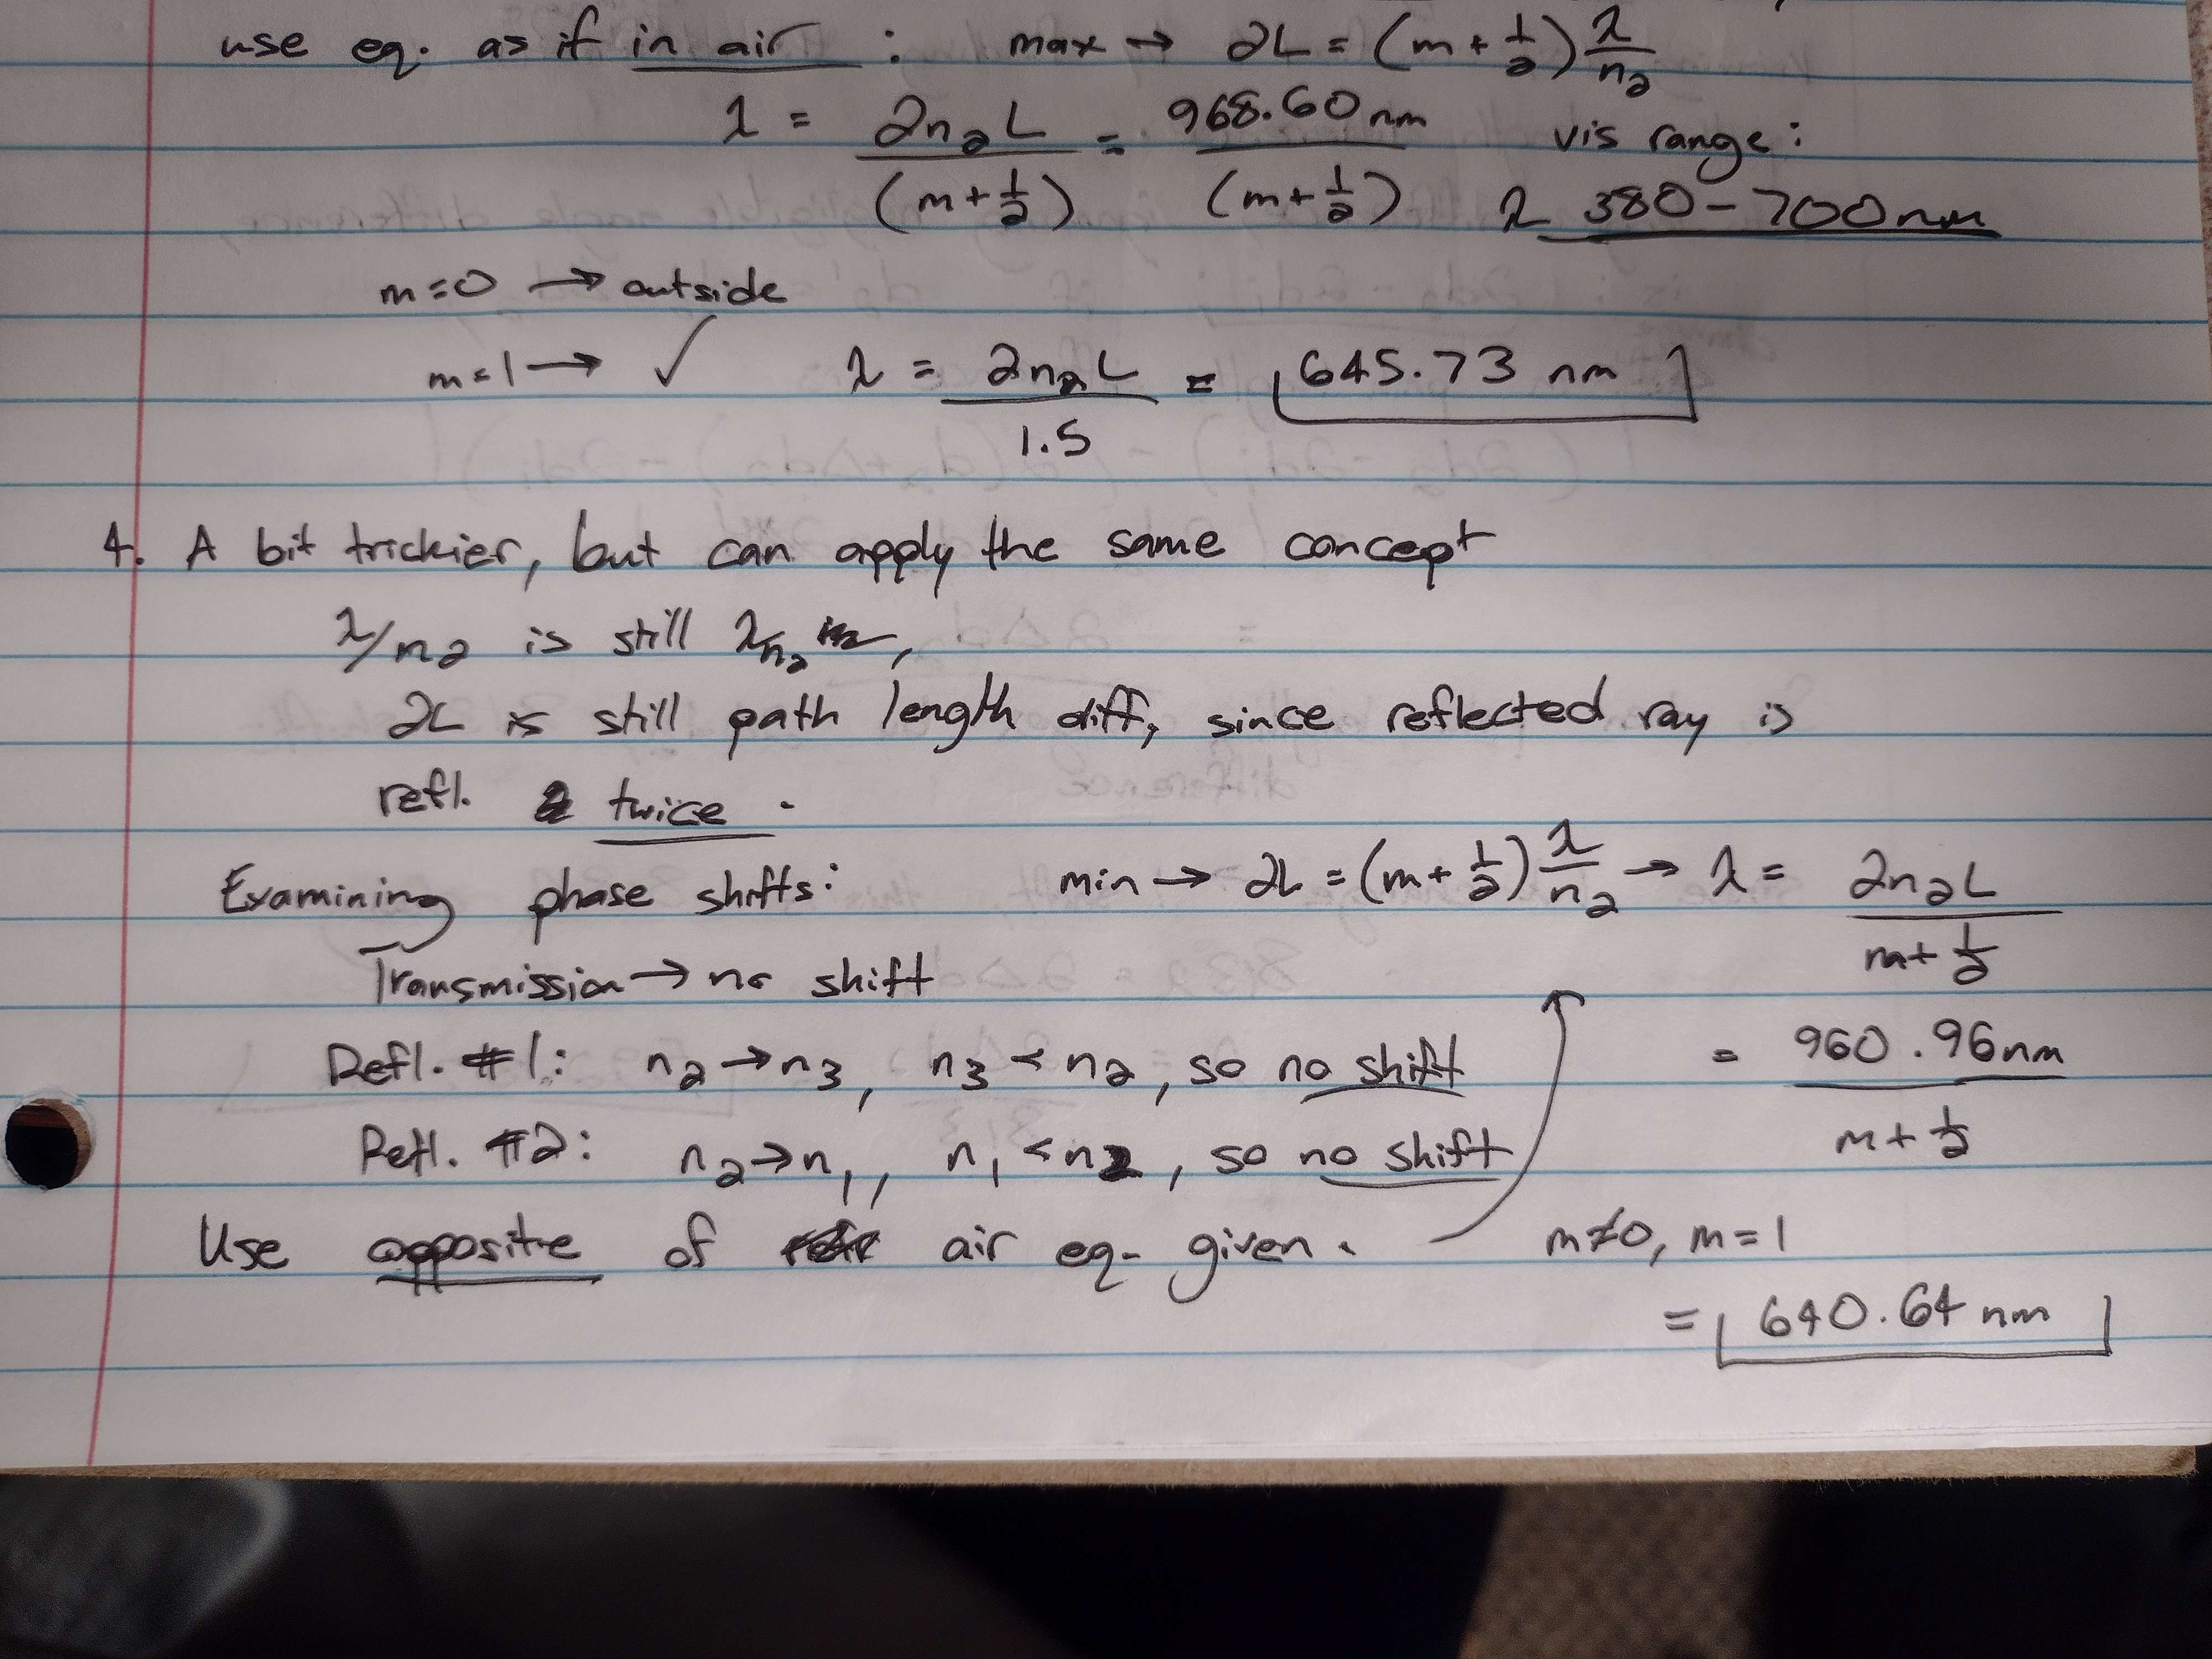 use eq. as if in air : max → 2L = (m + 1/2) λ/n2
λ = 2n2L/(m+1/2) = 968.60nm/(m+1/2) vis range:
λ 380-700nm
m=0 → outside
m=1 → ✓ λ = 2n2L/1.5 = 645.73 nm
4. A bit trickier, but can apply the same concept
λ/n2 is still λn2,
2L is still path length diff, since reflected ray is
refl. twice.
Examining phase shifts: min → 2L = (m + 1/2) λ/n2 → λ = 2n2L/(m+1/2)
Transmission → no shift
Refl. #1: n2→n3, n3 < n2, so no shift = 960.96nm/(m+1/2)
Refl. #2: n2→n1, n1 < n2, so no shift
Use opposite of air eq. given. m≠0, m=1
= 640.64 nm